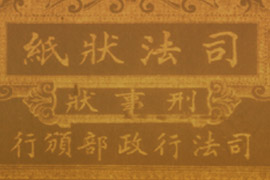 司法狀紙
刑事狀
司法行政部頒行